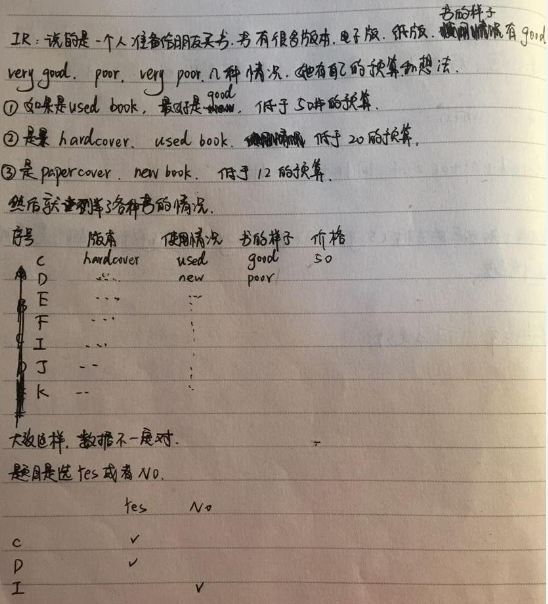 书的样子
IR：说的是一个人准备给朋友买书，书有很多版本，电子版，纸版，有good
very good, poor, very poor, 几种情况，她有自己的预算和想法，
① 如果是used book，最好是good，低于50的预算，
② 是 hardcover, used book, 低于20的预算，
③ 是papercover, new book, 低于12的预算，
然后就列举了各种书的情况，
序号 版本 使用情况 书的样子 价格
C hardcover used good 50
D ... new poor
E ...
F ...
I ...
J --
K --
大致这样，数据不一定对，
题目是选 Yes 或者 No.
Yes No
C ✓
D ✓
I ✓